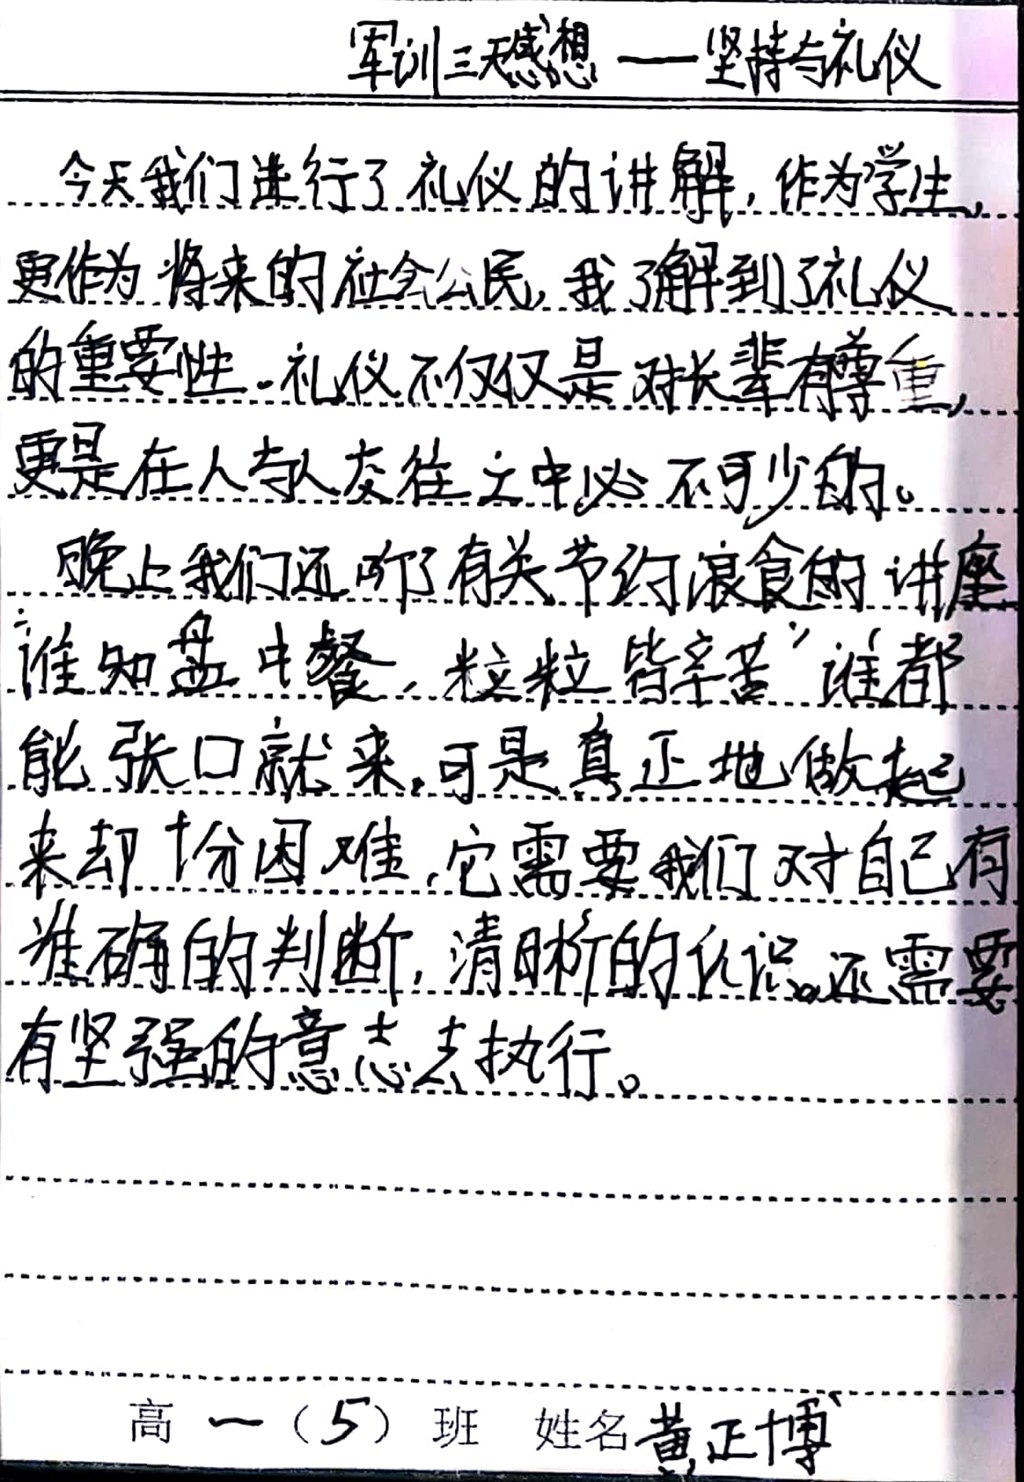 军训三天感想——坚持与礼仪
今天我们进行了礼仪的讲解，作为学生，
更作为将来的社会公民，我了解到了礼仪
的重要性。礼仪不仅仅是对长辈有尊重，
更是在人与人交往之中必不可少的。
晚上我们还听了有关节约浪食的讲座
“谁知盘中餐，粒粒皆辛苦”谁都
能张口就来，可是真正地做起
来却十分困难，它需要我们对自己有
准确的判断，清晰的认识。还需要
有坚强的意志去执行。
高一（5）班 姓名黄正博